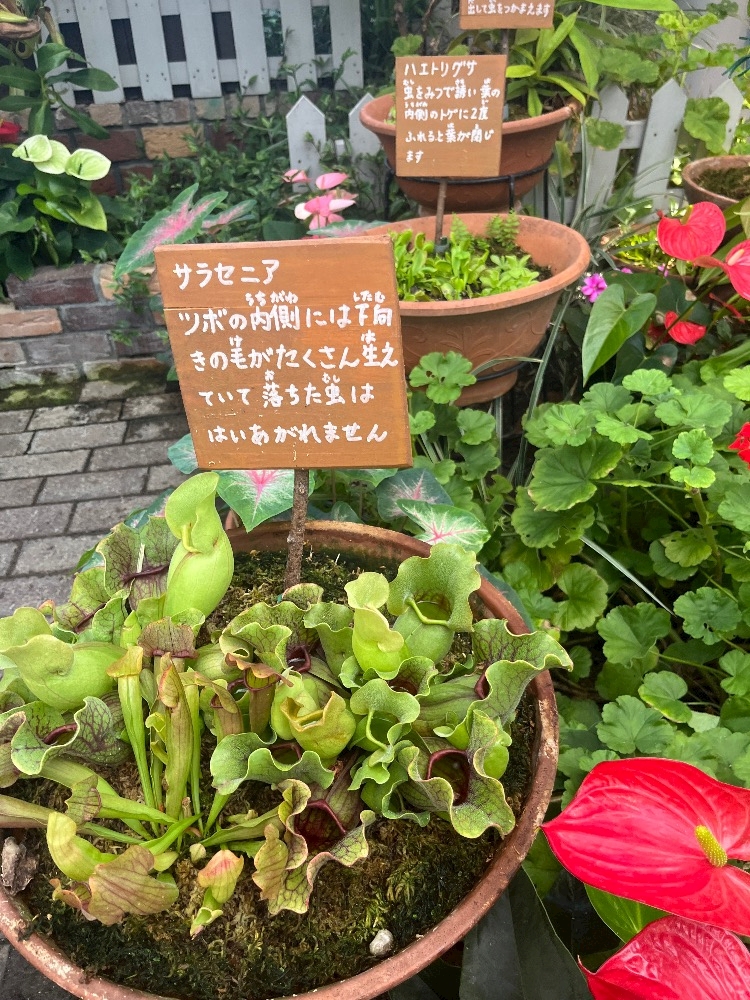 出して虫をつかまえます
ハエトリグサ
虫をみつで誘い葉の
内側のトゲに2度
ふれると葉が閉じ
ます
サラセニア
ツボの内側には下向
きの毛がたくさん生え
ていて落ちた虫は
はいあがれません